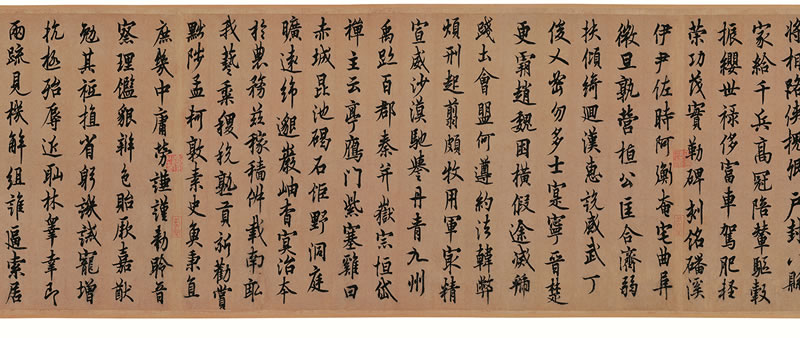 將相路俠槐卿戶封八縣
家給千兵高冠陪輦驅轂
振纓世祿侈富車駕肥輕
策功茂實勒碑刻銘磻溪
伊尹佐時阿衡奄宅曲阜
微旦孰營桓公匡合濟弱
扶傾綺迴漢惠說感武丁
俊乂密勿多士寔寧晉楚
更霸趙魏困橫假途滅虢
踐土會盟何遵約法韓弊
煩刑起翦頗牧用軍寂精
宣威沙漠馳譽丹青九州
禹跡百郡秦并嶽宗恒岱
禪主云亭鴈門紫塞雞田
赤城昆池碣石鉅野洞庭
曠遠綿邈巖岫杳冥治本
於農務茲稼穡俶載南畝
我藝黍稷稅熟貢新勸賞
黜陟孟軻敦素史魚秉直
庶幾中庸勞謙謹勅聆音
察理鑑貌辨色貽厥嘉猷
勉其祗植省躬譏誡寵增
抗極殆辱近恥林睾幸即
兩疏見機解組誰逼索居